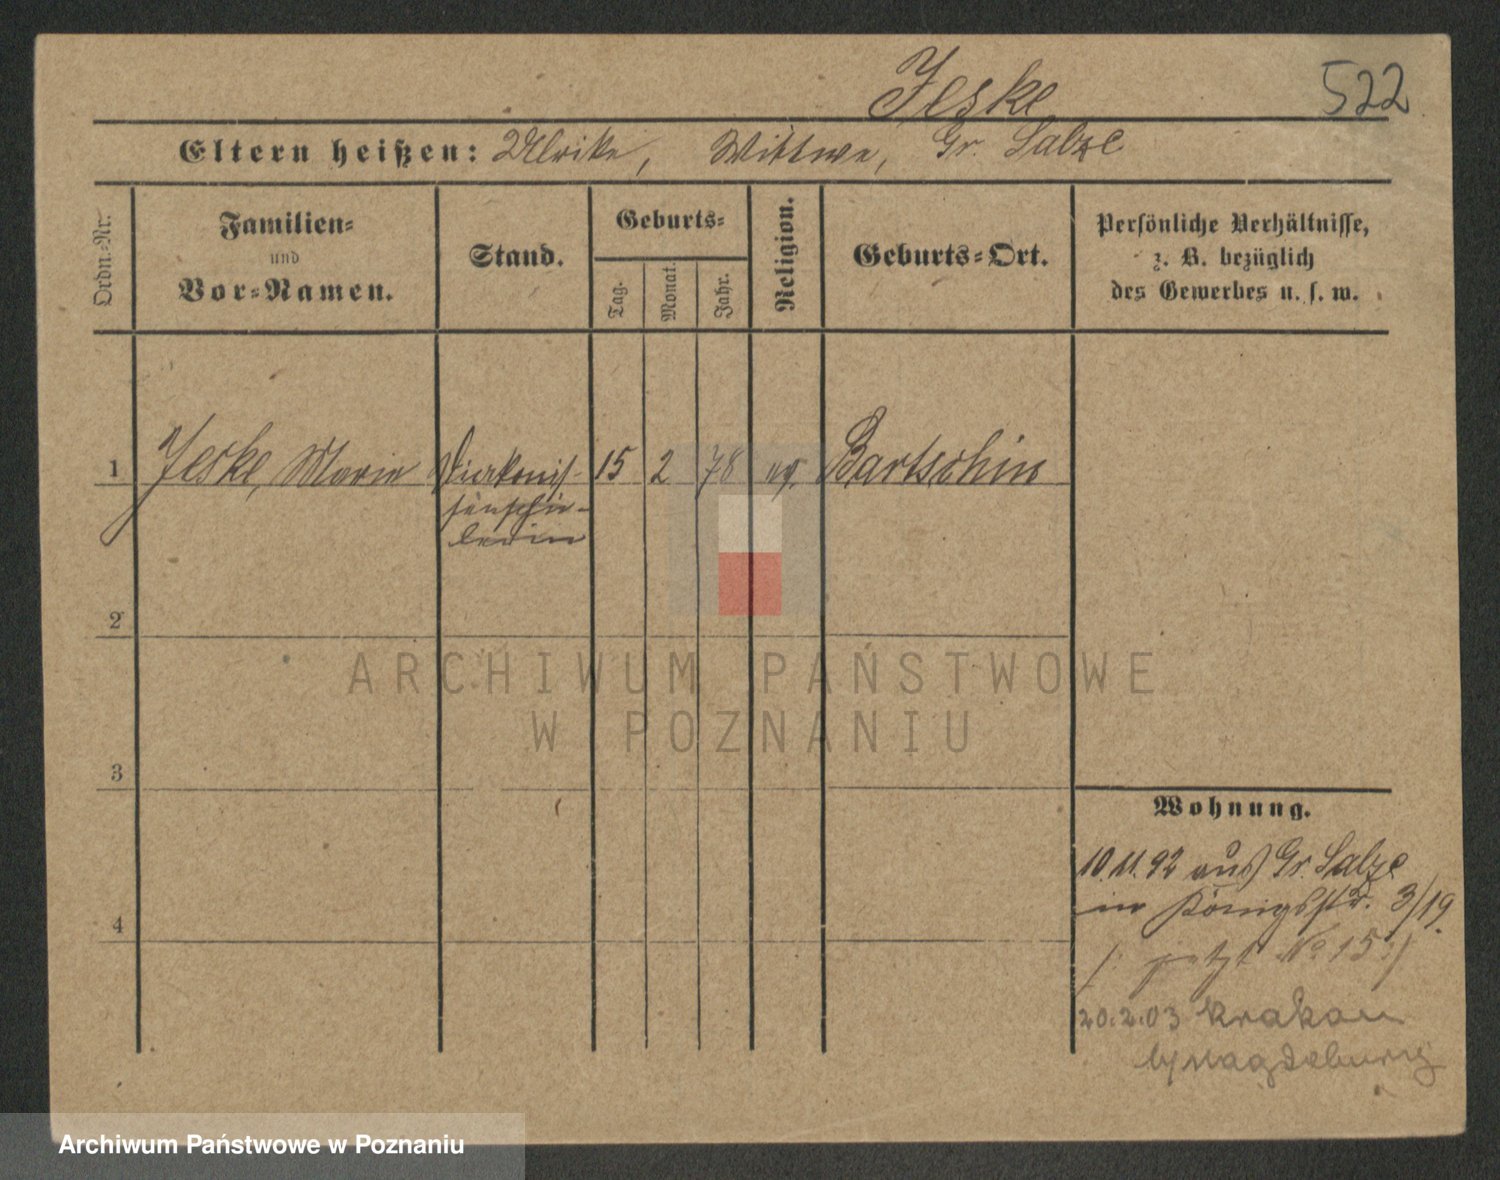 Jeske
522
Eltern heißen: Ulrike, Wittwe, Gr. Salze
Ordn.-Nr.
Familien-
und
Vor-Namen.
Stand.
Geburts-
Tag.
Monat.
Jahr.
Religion.
Geburts-Ort.
Persönliche Verhältnisse,
z. B. bezüglich
des Gewerbes u. s. w.
1 Jeske, Marie Diakonis- 15 2 78 ev. Bartschin
senschü-
lerin
2
3
4
Wohnung.
10.11.92 aus Gr. Salze
in Königsstr. 3/19.
/: jetzt No 15 :/
20.2.03 Krakau
b/Magdeburg
ARCHIWUM PAŃSTWOWE
W POZNANIU
Archiwum Państwowe w Poznaniu